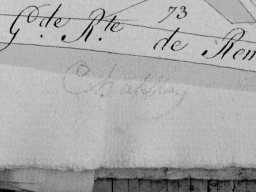 73
G.de R.te de Rem